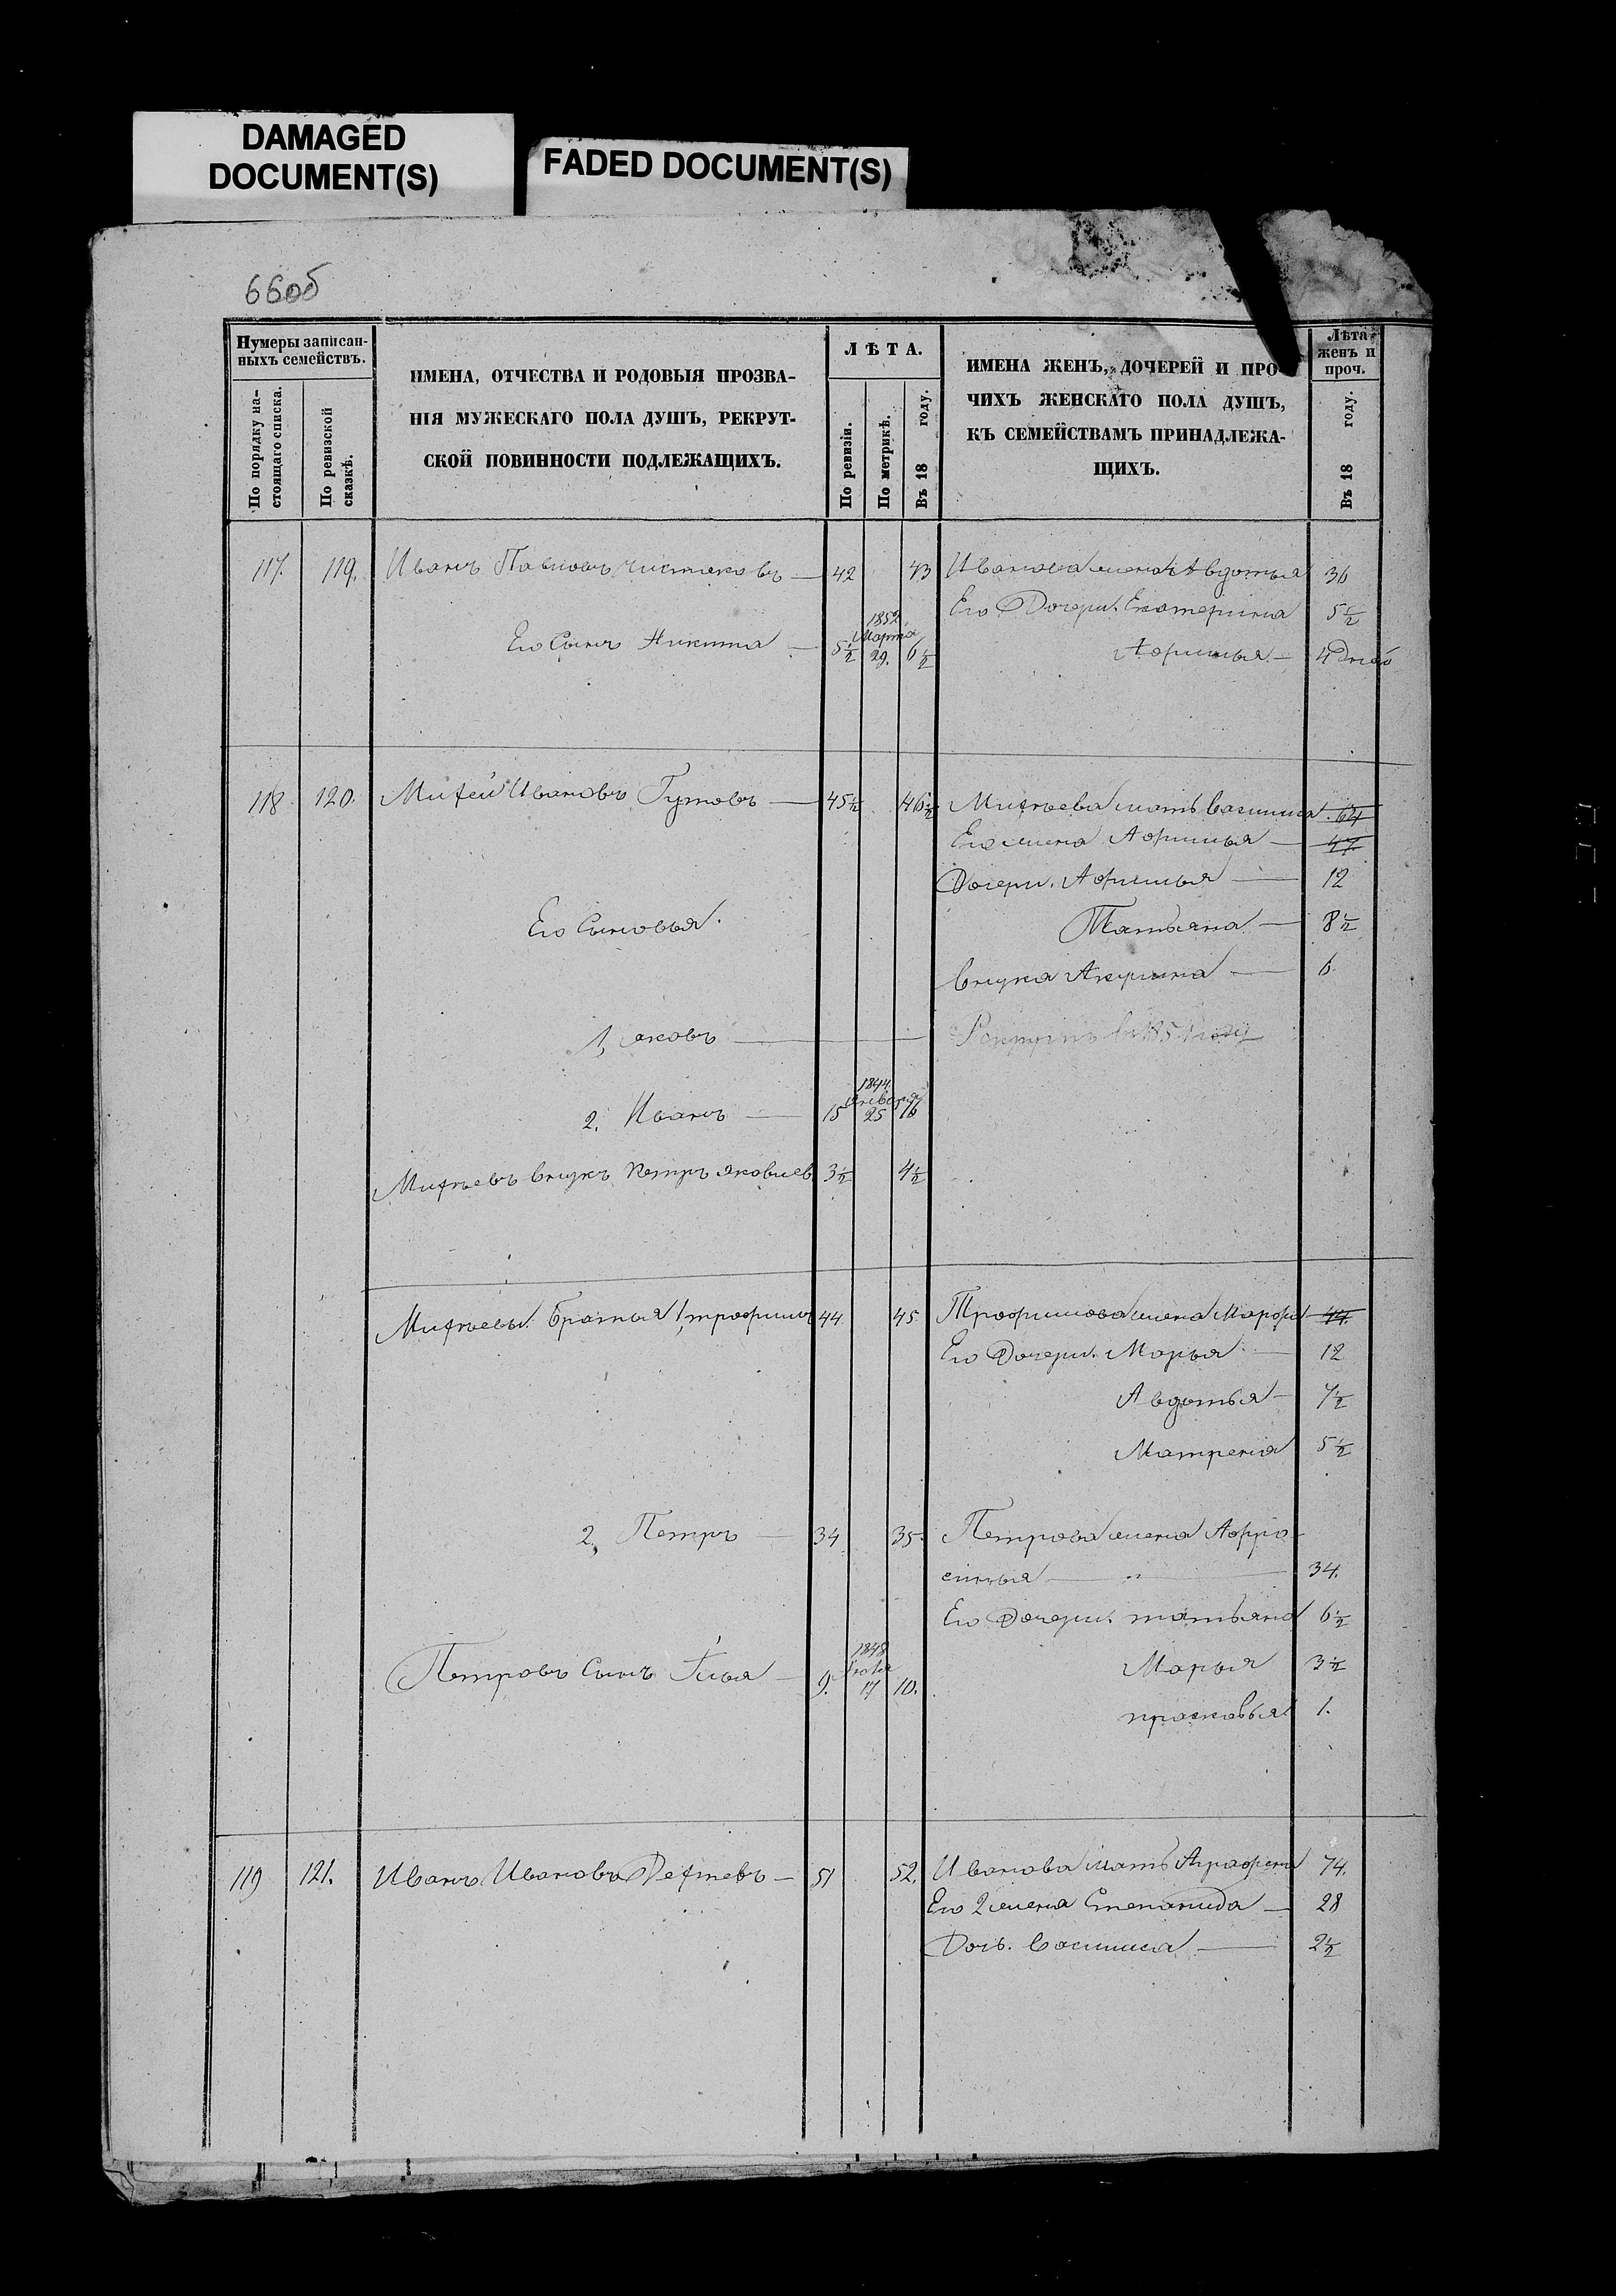 DAMAGED
DOCUMENT(S)
FADED DOCUMENT(S)
66об
Нумеры записан-
ныхъ семействъ.
По порядку на-
стоящаго списка.
По ревизской
сказкѣ.
ИМЕНА, ОТЧЕСТВА И РОДОВЫЯ ПРОЗВА-
НІЯ МУЖЕСКАГО ПОЛА ДУШЪ, РЕКРУТ-
СКОЙ ПОВИННОСТИ ПОДЛЕЖАЩИХЪ.
ЛѢТА.
По ревизіи.
По метрикѣ.
Въ 18 году.
ИМЕНА ЖЕНЪ, ДОЧЕРЕЙ И ПРО-
ЧИХЪ ЖЕНСКАГО ПОЛА ДУШЪ,
КЪ СЕМЕЙСТВАМЪ ПРИНАДЛЕЖА-
ЩИХЪ.
Лѣта
женъ и
проч.
Въ 18 году.
117. 119. Иванъ Павловъ Чистяковъ — 42 43 Иванова жена Авдотья 36
Его Дочери. Екатерина 5½
Его Сынъ Никита — 5½ 1852 Марта 29. 6½
Афимья — 4 Дней
118 120. Миѳей Ивановъ Гутовъ — 45½ 46½ Миѳѣева мать Василиса 64
Его жена Афимья — 47.
Дочери. Афимья — 12
Его Сыновья.
Татьяна — 8½
внука Акулина — 6.
1, яковъ — Рекрутъ въ 1854 году
2. Иванъ — 15 1844. Января 25 16
Миѳѣевъ внукъ Петръ яковлев 3½ 4½
Миѳѣевы Братья 1, трофимъ 44 45 Трофимова жена Марфа 44.
Его Дочери. Марья — 12
Авдотья — 7½
Матрена 5½
2, Петръ — 34 35. Петрова жена Афро-
синья — " — 34.
Его Дочери. татьяна 6½
Петровъ Сынъ Илья — 9. 1848 Іюля 17 10.
Марья 3½
прасковья 1.
119 121. Иванъ Ивановъ — 51 52. Иванова мать Аграфена 74.
Его 2 жена Степанида — 28
Дочь. Василиса — 2½